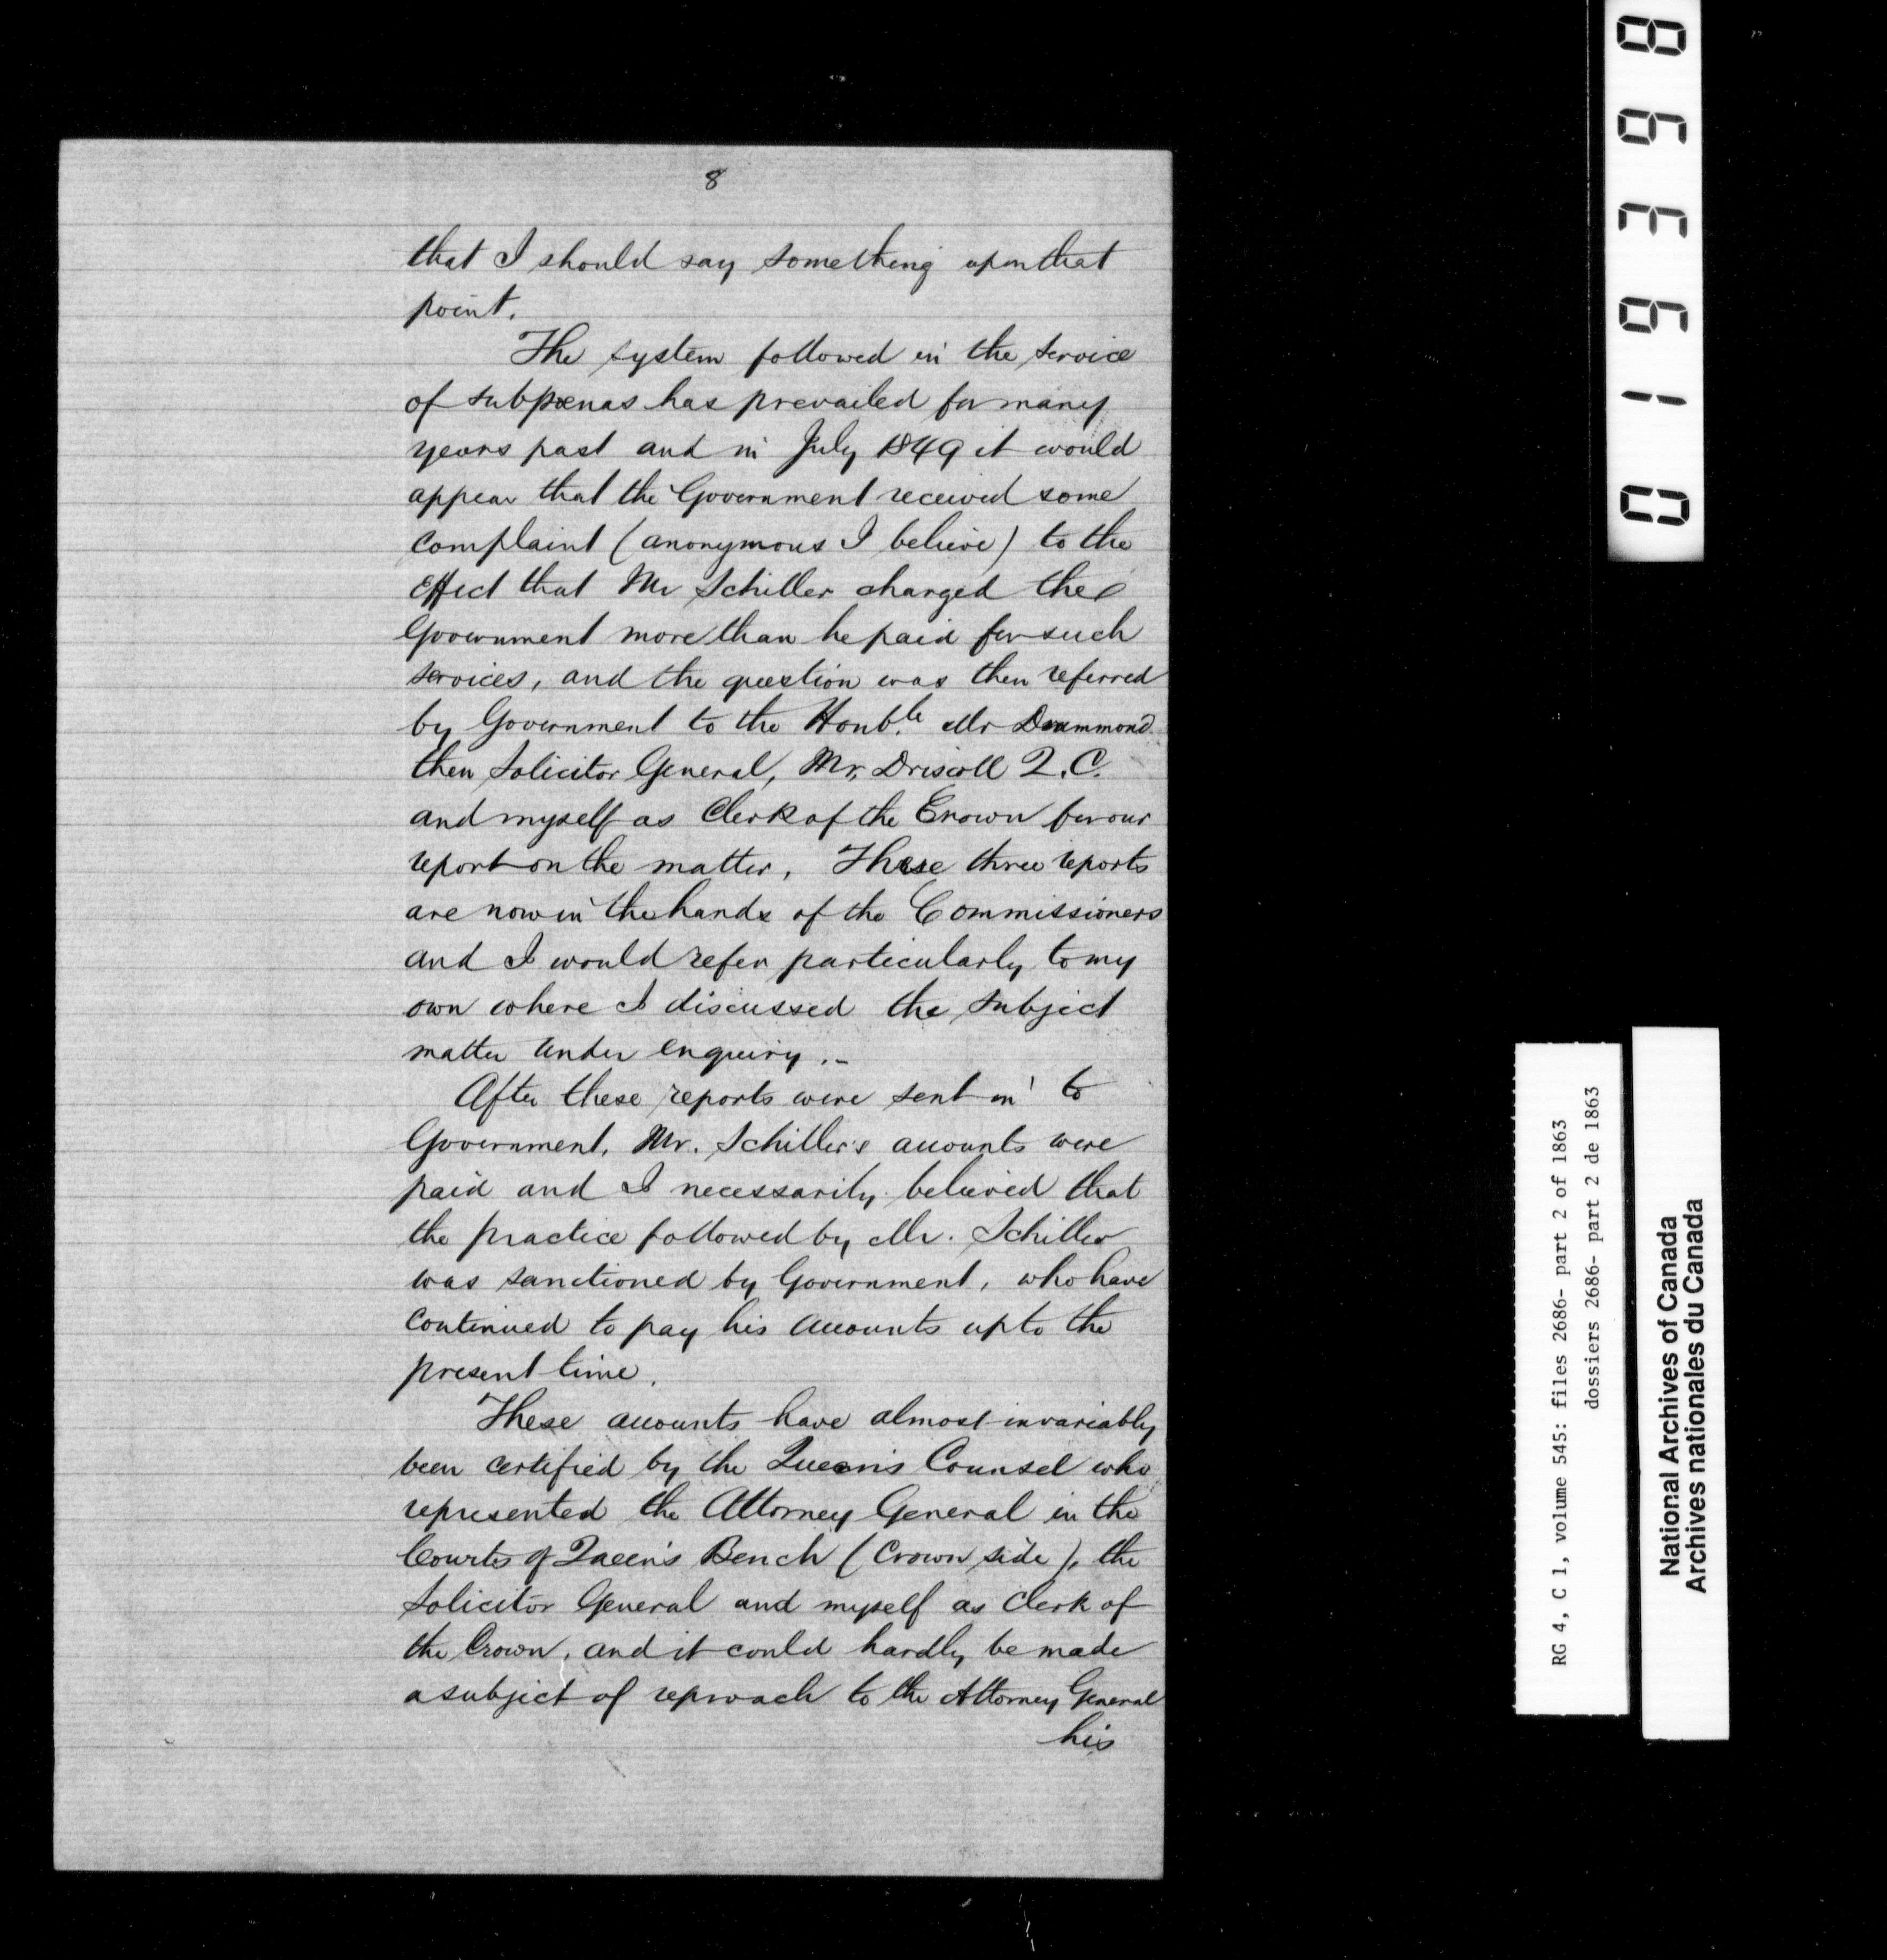 8
that I should say something upon that
point.
The system followed in the service
of subpœnas has prevailed for many
years past and in July 1849 it would
appear that the Government received some
complaint (anonymous I believe) to the
effect that Mr Schiller charged the
Government more than he paid for such
services, and the question was then referred
by Government to the Honble. Mr Drummond
then Solicitor General, Mr. Driscoll Q.C.
and myself as Clerk of the Crown for our
report on the matter. These three reports
are now in the hands of the Commissioners
and I would refer particularly to my
own where I discussed the subject
matter under enquiry.-
After these reports were sent in to
Government, Mr. Schiller's accounts were
paid and I necessarily believed that
the practice followed by Mr. Schiller
was sanctioned by Government, who have
continued to pay his accounts up to the
present time.
These accounts have almost invariably
been certified by the Queen's Counsel who
represented the Attorney General in the
Courts of Queen's Bench (Crown side), the
Solicitor General and myself as Clerk of
the Crown, and it could hardly be made
a subject of reproach to the Attorney General
his
019398
RG 4, C 1, volume 545: files 2686- part 2 of 1863
dossiers 2686- part 2 de 1863
National Archives of Canada
Archives nationales du Canada